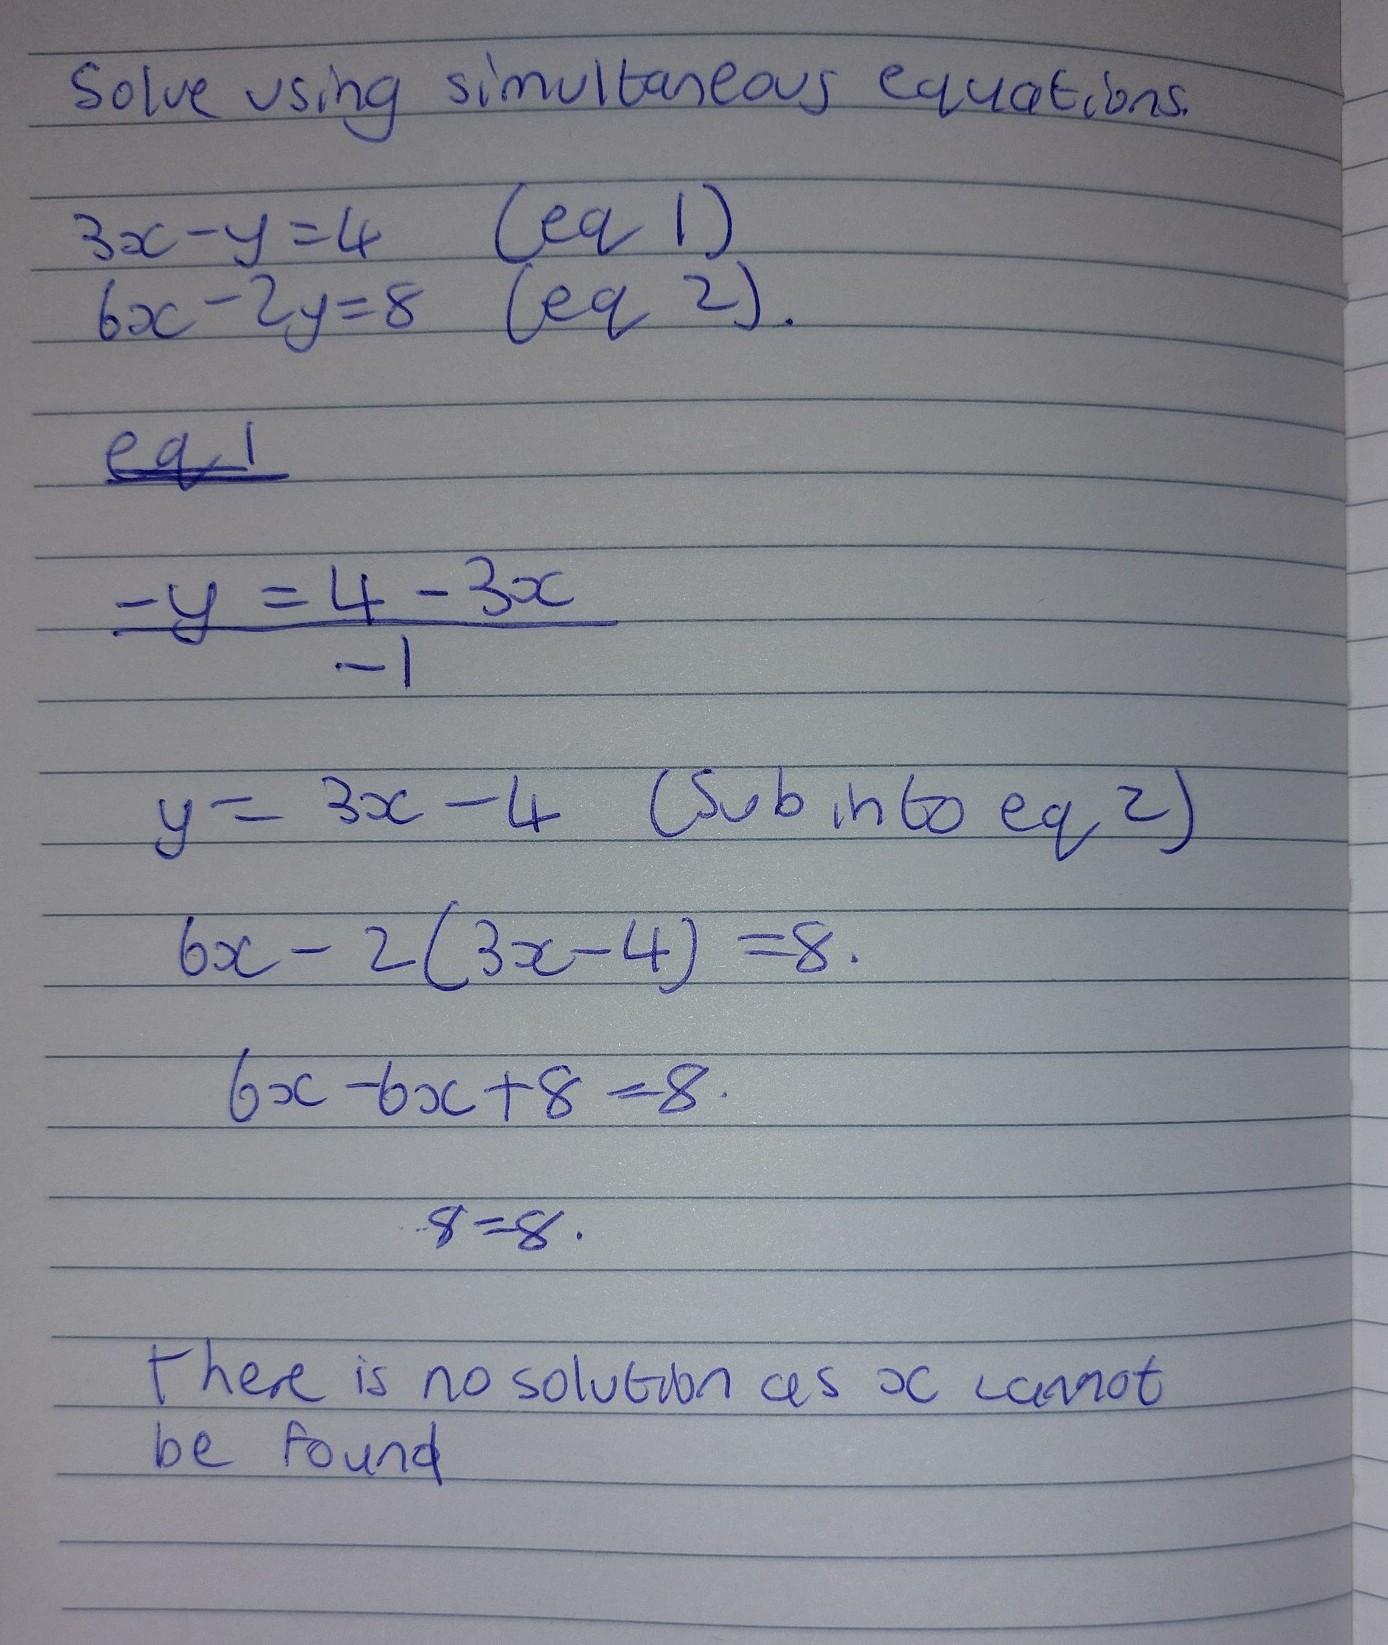 Solve using simultaneous equations.
3x - y = 4 (eq 1)
6x - 2y = 8 (eq 2).
eq 1
-y = 4 - 3x
-1
y = 3x - 4 (Sub into eq 2)
6x - 2(3x - 4) = 8.
6x - 6x + 8 = 8.
8 = 8.
there is no solution as x cannot
be found